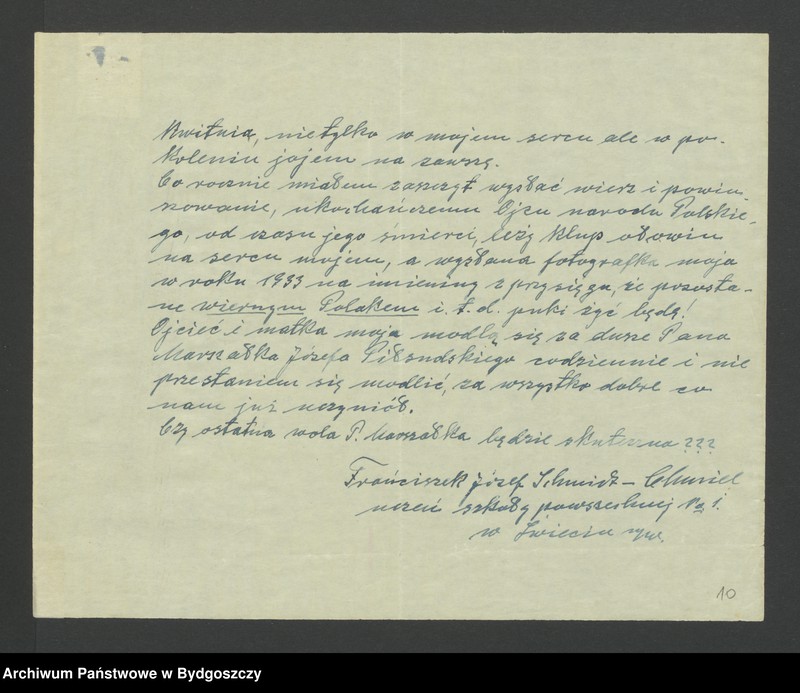 Kwitnią, nietylko w mojem sercu ale w po-
koleniu jojem na zawszę.
Co rocznie miałem zaszczyt wysłać wiersz i powin-
szowanie, ukochańczemu Ojcu narodu Polskie-
go, od czasu jego śmierci, leży
na sercu mojem, a wysłana fotografka moja
w roku 1933 na imieniny z przysięgą, że pozosta-
ne wiernym Polakem i t.d. puki żyć będę!
Ojcieć i matka moja modlą się za dusze Pana
Marszałka Józefa Piłsudskiego codziennie i nie
przestaniem się modlić, za wszystko dobre co
nam już uczyniół.
Czy ostatna wola P. Marszałka będzie skuteczna???
Frańciszek Józef Schmidt – Chmiel
uczeń szkoły powszechnej No 1.
w Świeciu
10
Archiwum Państwowe w Bydgoszczy